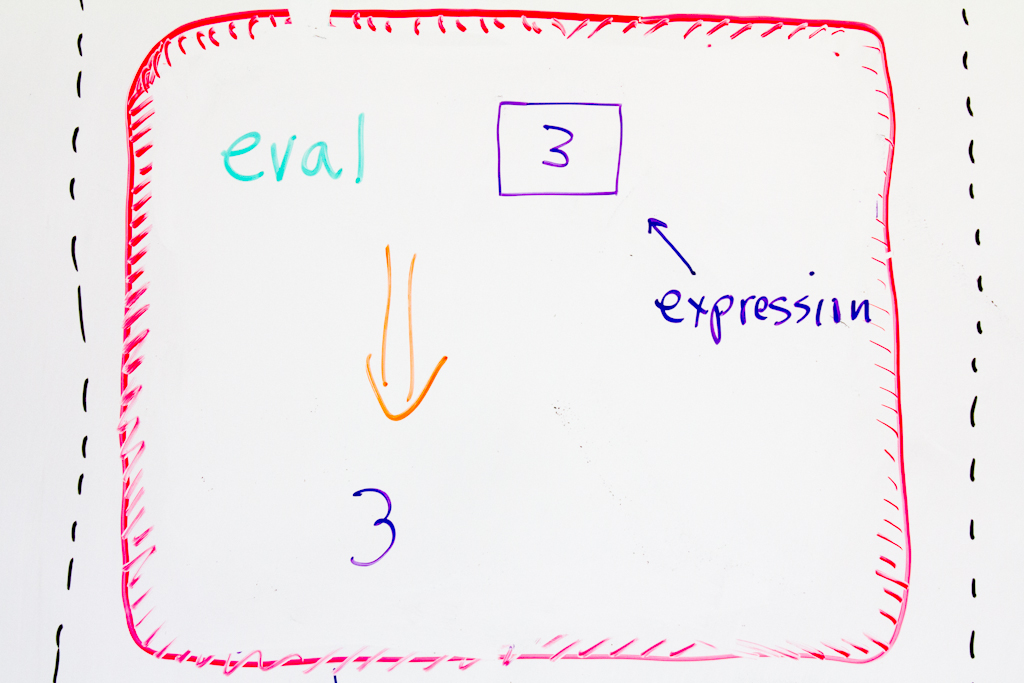 eval 3
expression
3